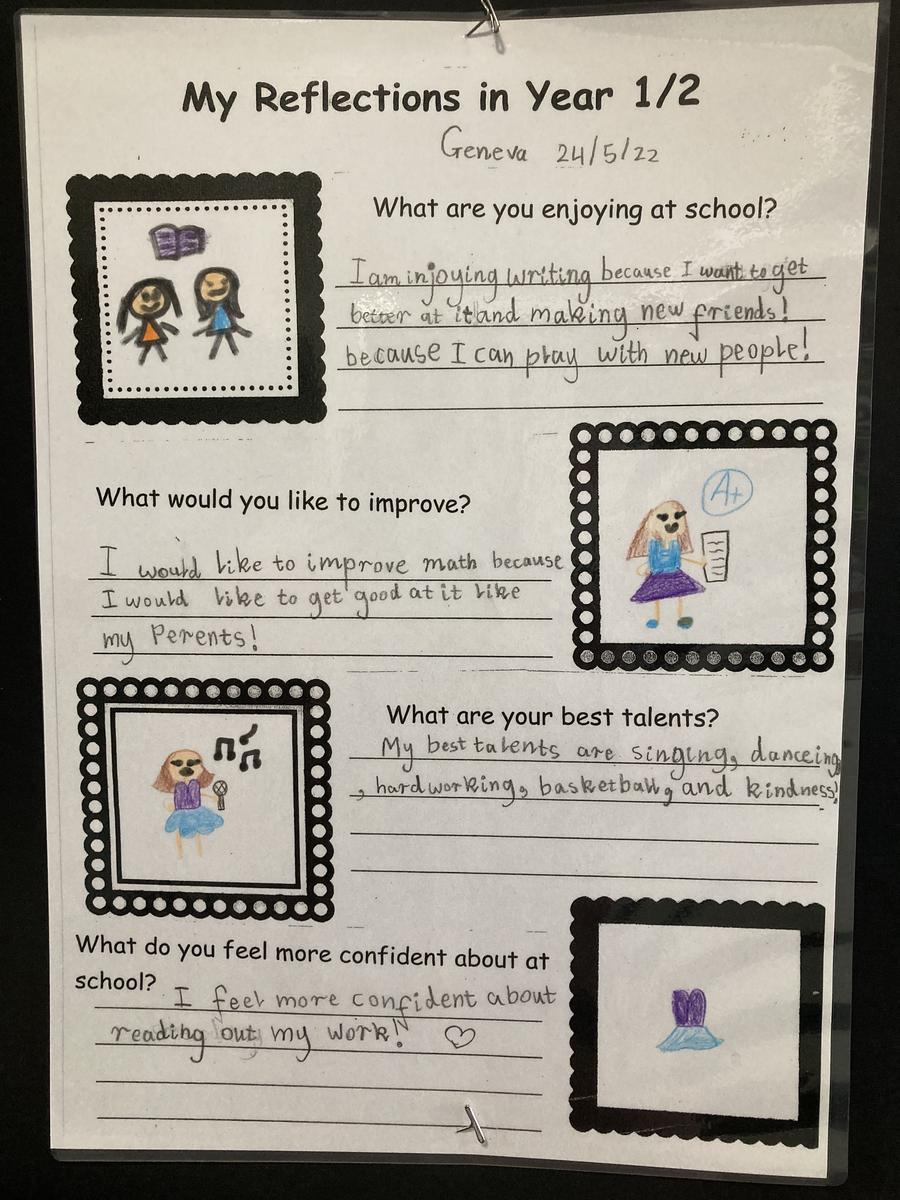 My Reflections in Year 1/2
Geneva 24/5/22
What are you enjoying at school?
I am injoying writing because I want to get
better at it and making new friends!
because I can play with new people!
What would you like to improve?
I would like to improve math because
I would like to get good at it like
my Perents!
A+
What are your best talents?
My best talents are singing, danceing
, hardworking, basketball, and kindness!
What do you feel more confident about at
school?
I feel more confident about
reading out my work!